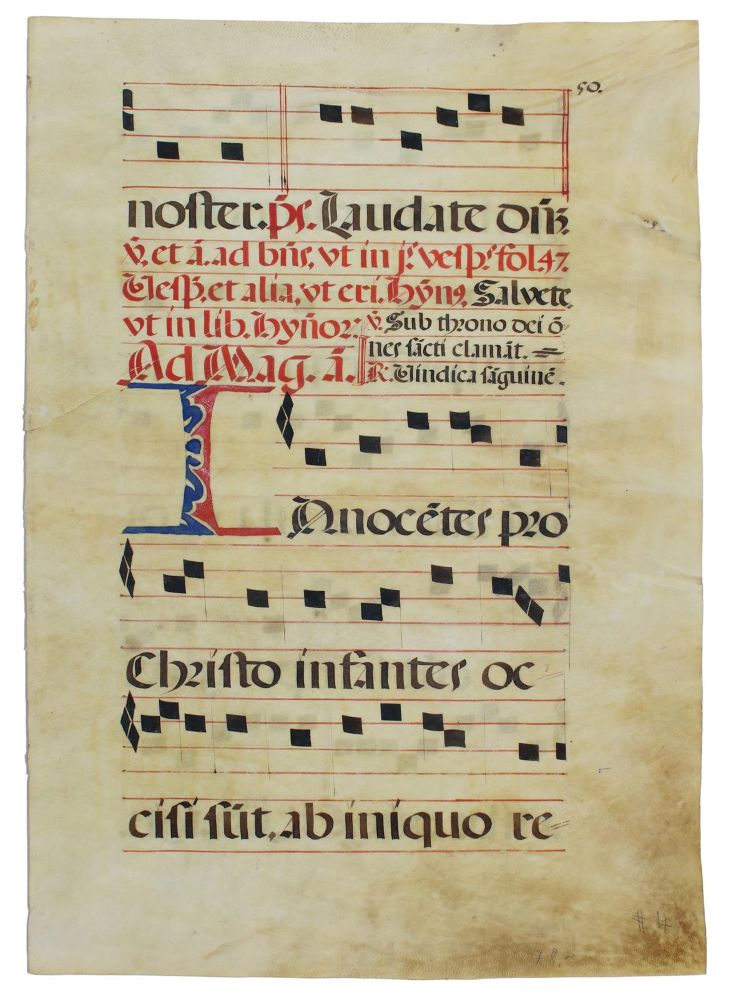 50.
noster. p̃s. Laudate dñ̃z.
v̇, et ã. ad bñs, vt in j.ͤ vesp.ͤ fol. 47.
Vesp̃. et alia, vt eri. Hỹn9, Salvete
vt in lib. hyñor: v̇. Sub throno dei õ-
nes sãcti clamãt. =
Ad Mag. ã. R. Vindica sãguinẽ.
INnocẽtes pro
Christo infantes oc
cisi sũt, ab iniquo re=
# 4
78.-